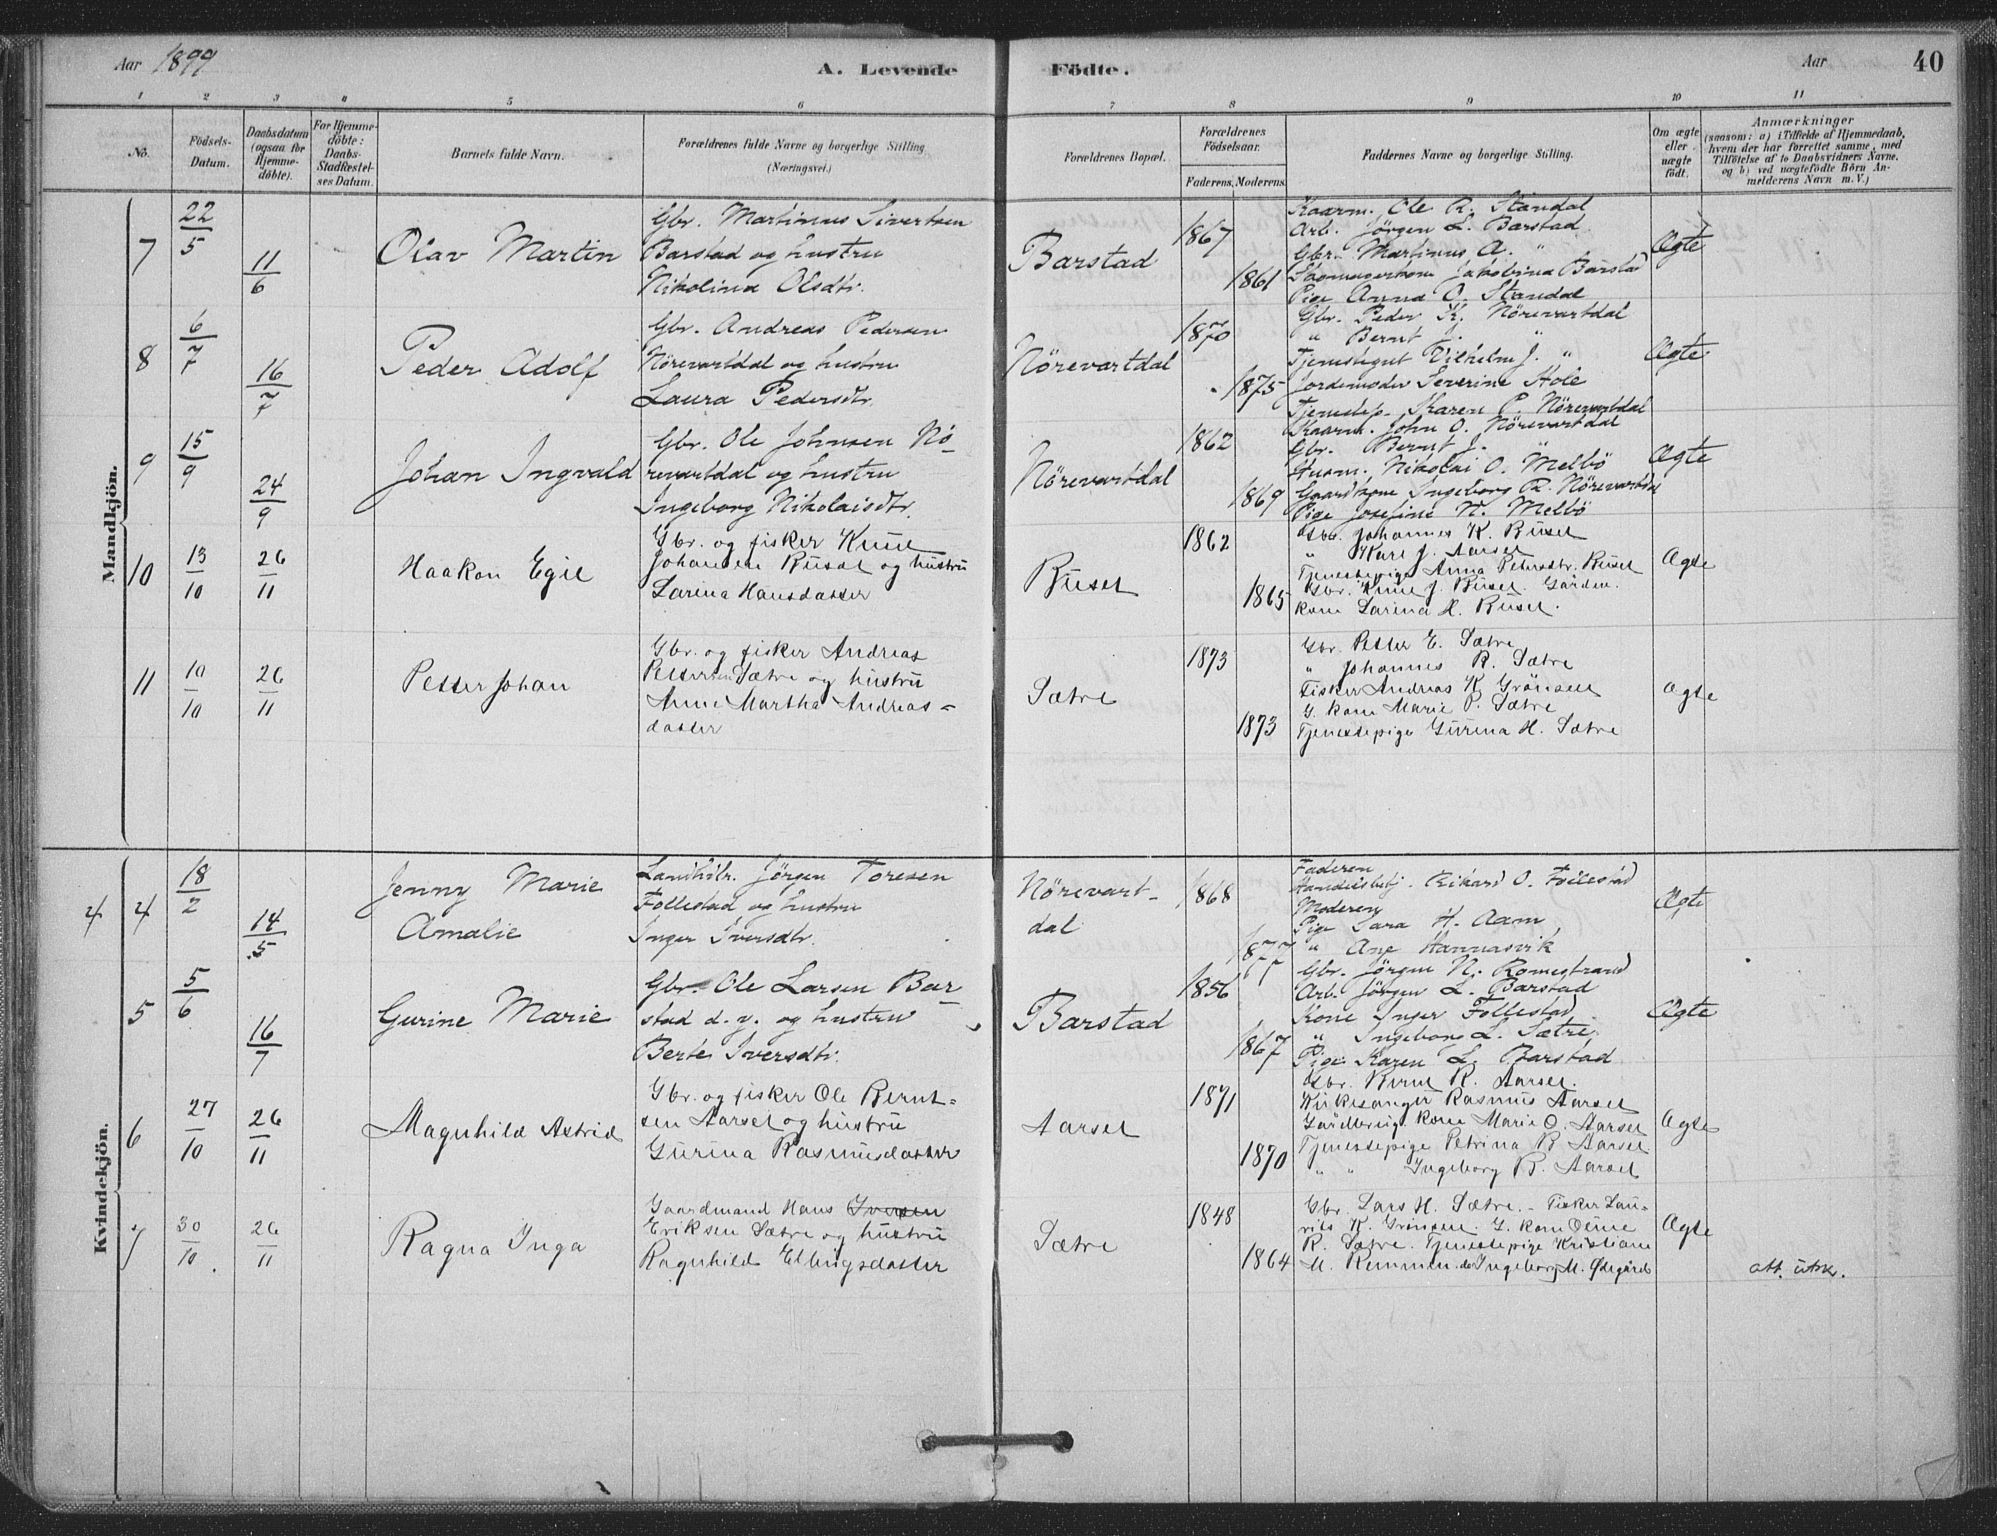 Aar 1899
A. Levende
Födte.
Aar
40
1 2 3 4 5 6 7 8 9 10 11
No.
Födsels-
Datum.
Daabsdatum
(ogsaa for
Hjemme-
döbte).
For Hjemme-
döbte:
Daabs-
Stadfæstel-
ses Datum.
Barnets fulde Navn.
Forældrenes fulde Navne og borgerlige Stilling
(Næringsvei.)
Forældrenes Bopæl.
Forældrenes
Födselsaar.
Faderens. Moderens.
Faddernes Navne og borgerlige Stilling.
Om ægte
eller
uægte
födt.
Anmærkninger
(saasom: a) i Tilfælde af Hjemmedaab,
hvem der har forrettet samme, med
Tilföielse af to Daabsvidners Navne,
og b) ved uægtefödte Börn An-
melderens Navn m. V.)
Mandkjön.
7
22/5
11/6
Olav Martin
Gbr. Martinus Sivertsen
Barstad og hustru
Nikolina Olsdtr.
Barstad
1867
1861
Kaarm. Ole R. Standal
Arb. Jörgen L. Barstad
Gbr. Martinus A. "
Jakobina Barstad
Pige Anna O. Standal
Ægte
8
6/7
16/7
Peder Adolf
Gbr. Andreas Pedersen
Nörevartdal og hustru
Laura Pedersdtr.
Nörevartdal
1870
1875
Gbr. Peder K. Nörevartdal
" Bernt J. "
Tjenestegut Vilhelm J. "
Jordemoder Severine Hole
Tjenestep. Karen P. Nörevartdal
Ægte
9
15/9
24/9
Johan Ingvald
Gbr. Ole Johnsen Nö-
revartdal og hustru
Ingeborg Nikolaisdtr.
Nörevartdal
1862
1869
Kaarm. John O. Nörevartdal
Gbr. Bernt J. "
Husm. Nikolai O. Melbö
Gaardkone Ingeborg R. Nörevartdal
Pige Josefine N. Melbö
Ægte
10
13/10
26/11
Haakon Egil
Gbr. og fisker Knut
Johansen Buset og hustru
Larina Hansdatter
Buset
1862
1865
Gbr. Johannes K. Buset
" Kare J. Aarset
Tjenestepige Anna Petersdtr. Buset
Gbr. Knut J. Buset. Gaarden.
kone Larina H. Buset.
Ægte
11
10/10
26/11
Petter Johan
Gbr. og fisker Andreas
Pettersen Sætre og hustru
Anne Martha Andreas-
datter
Sætre
1873
1873
Gbr. Petter E. Sætre
" Johannes R. Sætre
Fisker Andreas K. Grönsen
G. kone Marie P. Sætre
Tjenestepige Gurina H. Sætre
Ægte
Kvindekjön.
4
4
18/2
14/5
Jenny Marie
Amalie
Landhdlr. Jörgen Toresen
Follestad og hustru
Inger Iversdtr.
Nörevart-
dal
1868
1877
Faderen
Handelsbetj. Rikard O. Follestad
Moderen
Pige Lara H. Aam
" Ane Hannasvik
Ægte
5
5/6
16/7
Gurine Marie
Gbr. Ole Larsen Bar-
stad d. y. og hustru
Berte Iversdtr.
Barstad
1856
1867
Gbr. Jörgen N. Romestrand
Arb. Jörgen L. Barstad
Kone Inger Follestad
" Ingeborg L. Sætre
Pige Karen L. Barstad
Ægte
6
27/10
26/11
Magnhild Astrid
Gbr. og fisker Ole Bernt-
sen Aarset og hustru
Gurina Rasmusdatter
Aarset
1871
1870
Gbr. Bernt R. Aarset.
Kirkesanger Rasmus Aarset
Gaardbrug. kone Marie O. Aarset
Tjenestepige Petrina B. Aarset
" " Ingeborg R. Aarset
Ægte
7
30/10.
26/11
Ragna Inga
Gaardmand Hans Iversen
Eriksen Sætre og hustru
Ragnhild Ellingsdatter
Sætre
1848
1864
Gbr. Lars H. Sætre. - Fisker Lau-
rits K. Grönsen. G. kone Oline
R. Sætre. Tjenestepige Kristiane
M. Remmen. do Ingeborg M. Ödegård
Ægte
att. utsk.